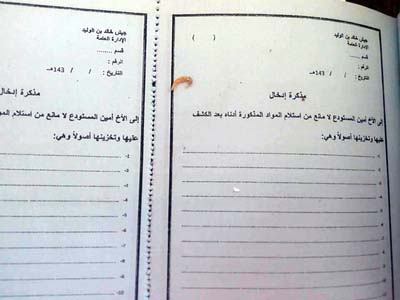 جيش خالد بن الوليد
الإدارة العامة
قسم ........
الرقم :
التاريخ : / / 143هـ
( )
مذكرة إدخال
إلى الأخ أمين المستودع لا مانع من استلام المواد المذكورة أدناه بعد الكشف
عليها وتخزينها أصولاً وهي:
1-
2-
3-
4-
5-
6-
7-
8-
جيش خالد بن الوليد
الإدارة العامة
قسم ........
الرقم :
التاريخ : / / 143هـ
مذكرة إدخال
إلى الأخ أمين المستودع لا مانع من استلام المواد
عليها وتخزينها أصولاً وهي:
1-
2-
3-
4-
5-
6-
7-
8-
9-
10-